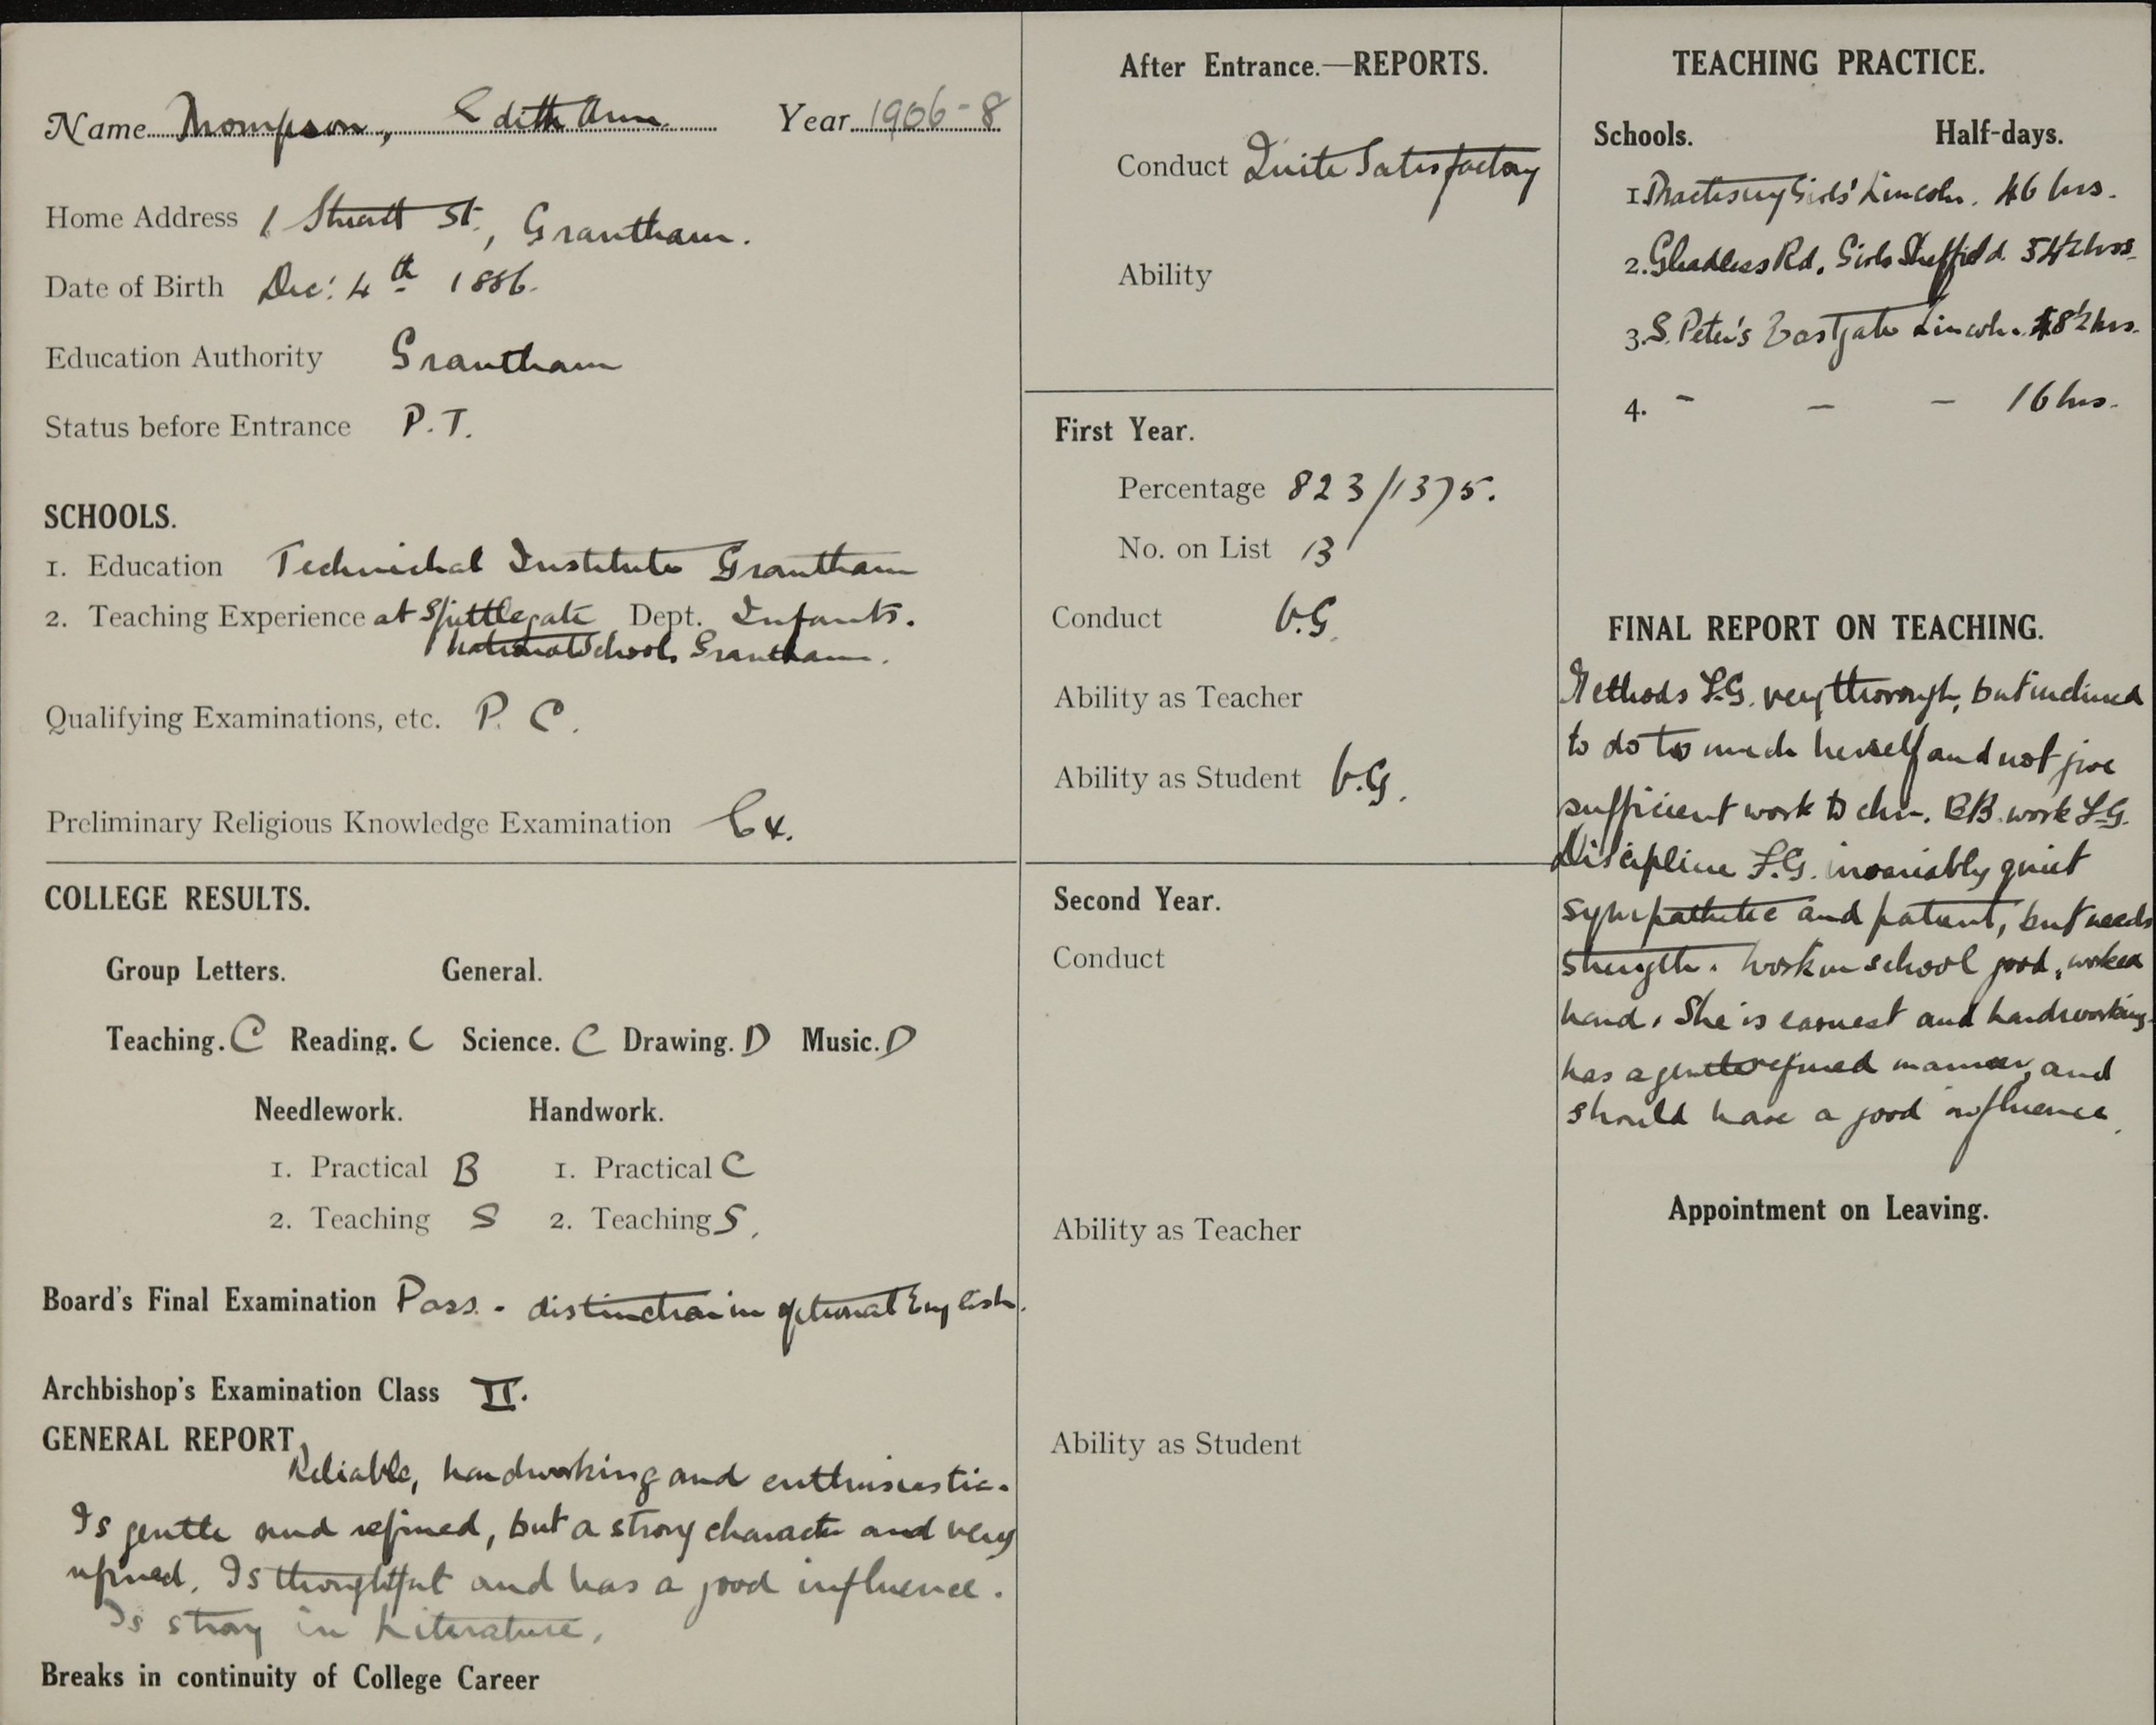 Name Thompson, Edith Ann. Year 1906-8
Home Address 1 Stuart St., Grantham.
Date of Birth Dec: 4th 1886.
Education Authority Grantham
Status before Entrance P.T.
SCHOOLS.
1. Education Technichal Institute Grantham
2. Teaching Experience at Spittlegate Dept. Infants.
National Schools Grantham.
Qualifying Examinations, etc. P. C.
Preliminary Religious Knowledge Examination
COLLEGE RESULTS.
Group Letters. General.
Teaching. C Reading. C Science. C Drawing. D Music. D
Needlework. Handwork.
1. Practical B 1. Practical C
2. Teaching S 2. Teaching S.
Board's Final Examination Pass. - distinction in optional English.
Archbishop's Examination Class II.
GENERAL REPORT,
Reliable, hardworking and enthusiastic.
Is gentle and refined, but a strong character and very
refined. Is thoughtful and has a good influence.
Is strong in Literature.
Breaks in continuity of College Career
After Entrance.—REPORTS.
Conduct Quite Satisfactory
Ability
First Year.
Percentage 823/1375.
No. on List 13
Conduct V.G.
Ability as Teacher
Ability as Student V.G.
Second Year.
Conduct
Ability as Teacher
Ability as Student
TEACHING PRACTICE.
Schools. Half-days.
1. Practising Girls' Lincoln. 46 hrs.
2. Gleadless Rd. Girls Sheffield. 54½ hrs.
3. S. Peter's Eastgate Lincoln. 48½ hrs.
4. - - - 16 hrs.
FINAL REPORT ON TEACHING.
Methods F.G. very thorough, but inclined
to do too much herself and not give
sufficient work to chn. BB. work F.G.
Discipline F.G. invariably quiet
sympathetic and patient, but needs
strength. Work in school good, worked
hard. She is earnest and hardworking
has a gentle refined manner, and
should have a good influence.
Appointment on Leaving.